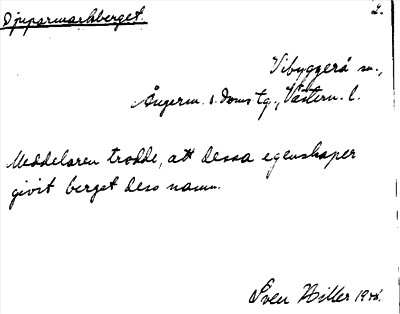 Djuparmarksberget. 2.
Vibyggerå sn.,
Ångerm. s. doms tg., Västern. l.
Meddelaren trodde, att dessa egenskaper
givit berget dess namn.
Sven Hiller